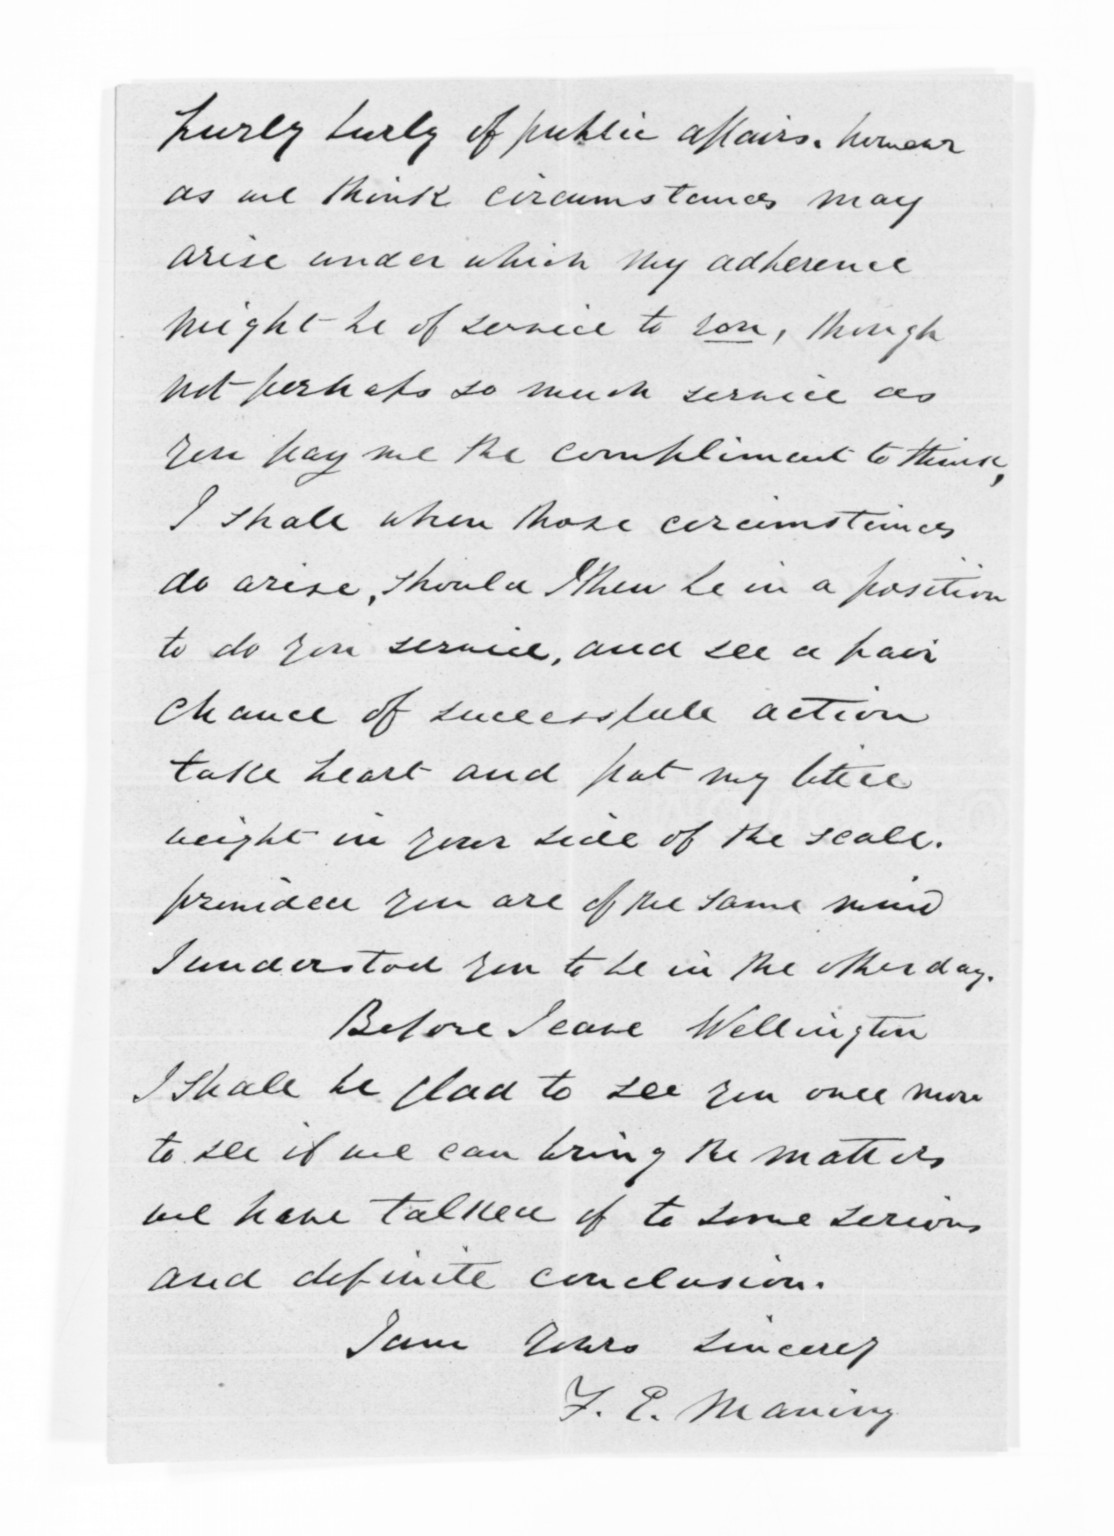 hurly burly of public affairs. however
as we think circumstances may
arise under which my adherence
might be of service to you, though
not perhaps so much service as
you pay me the compliment to think,
I shall when those circumstances
do arise, should I then be in a position
to do you service, and see a fair
chance of successfull action
take heart and put my little
weight in your side of the scale.
provided you are of the same mind
I understood you to be in the other day.
Before I leave Wellington
I shall be glad to see you once more
to see if we can bring the matters
we have talked of to some serious
and definite conclusion.
I am yours sincerely
F. E. Maning